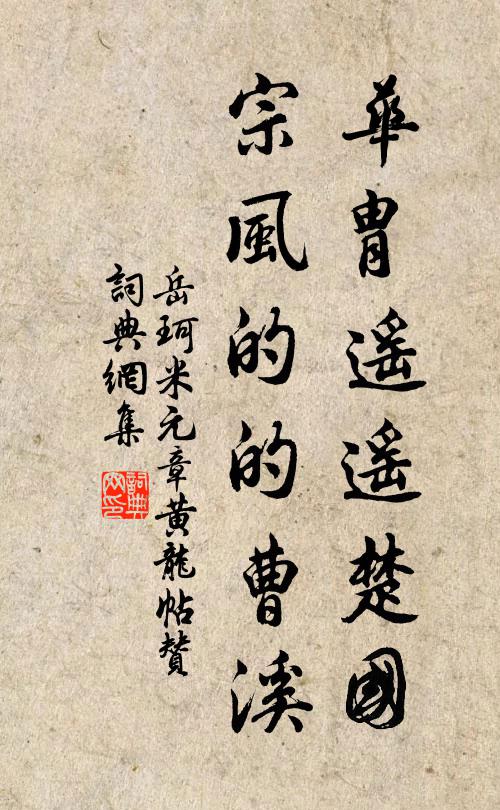 華胄遥遥楚國
宗風的的曹溪
岳珂米元章黄龍帖賛
詞典網集
詞典
网印